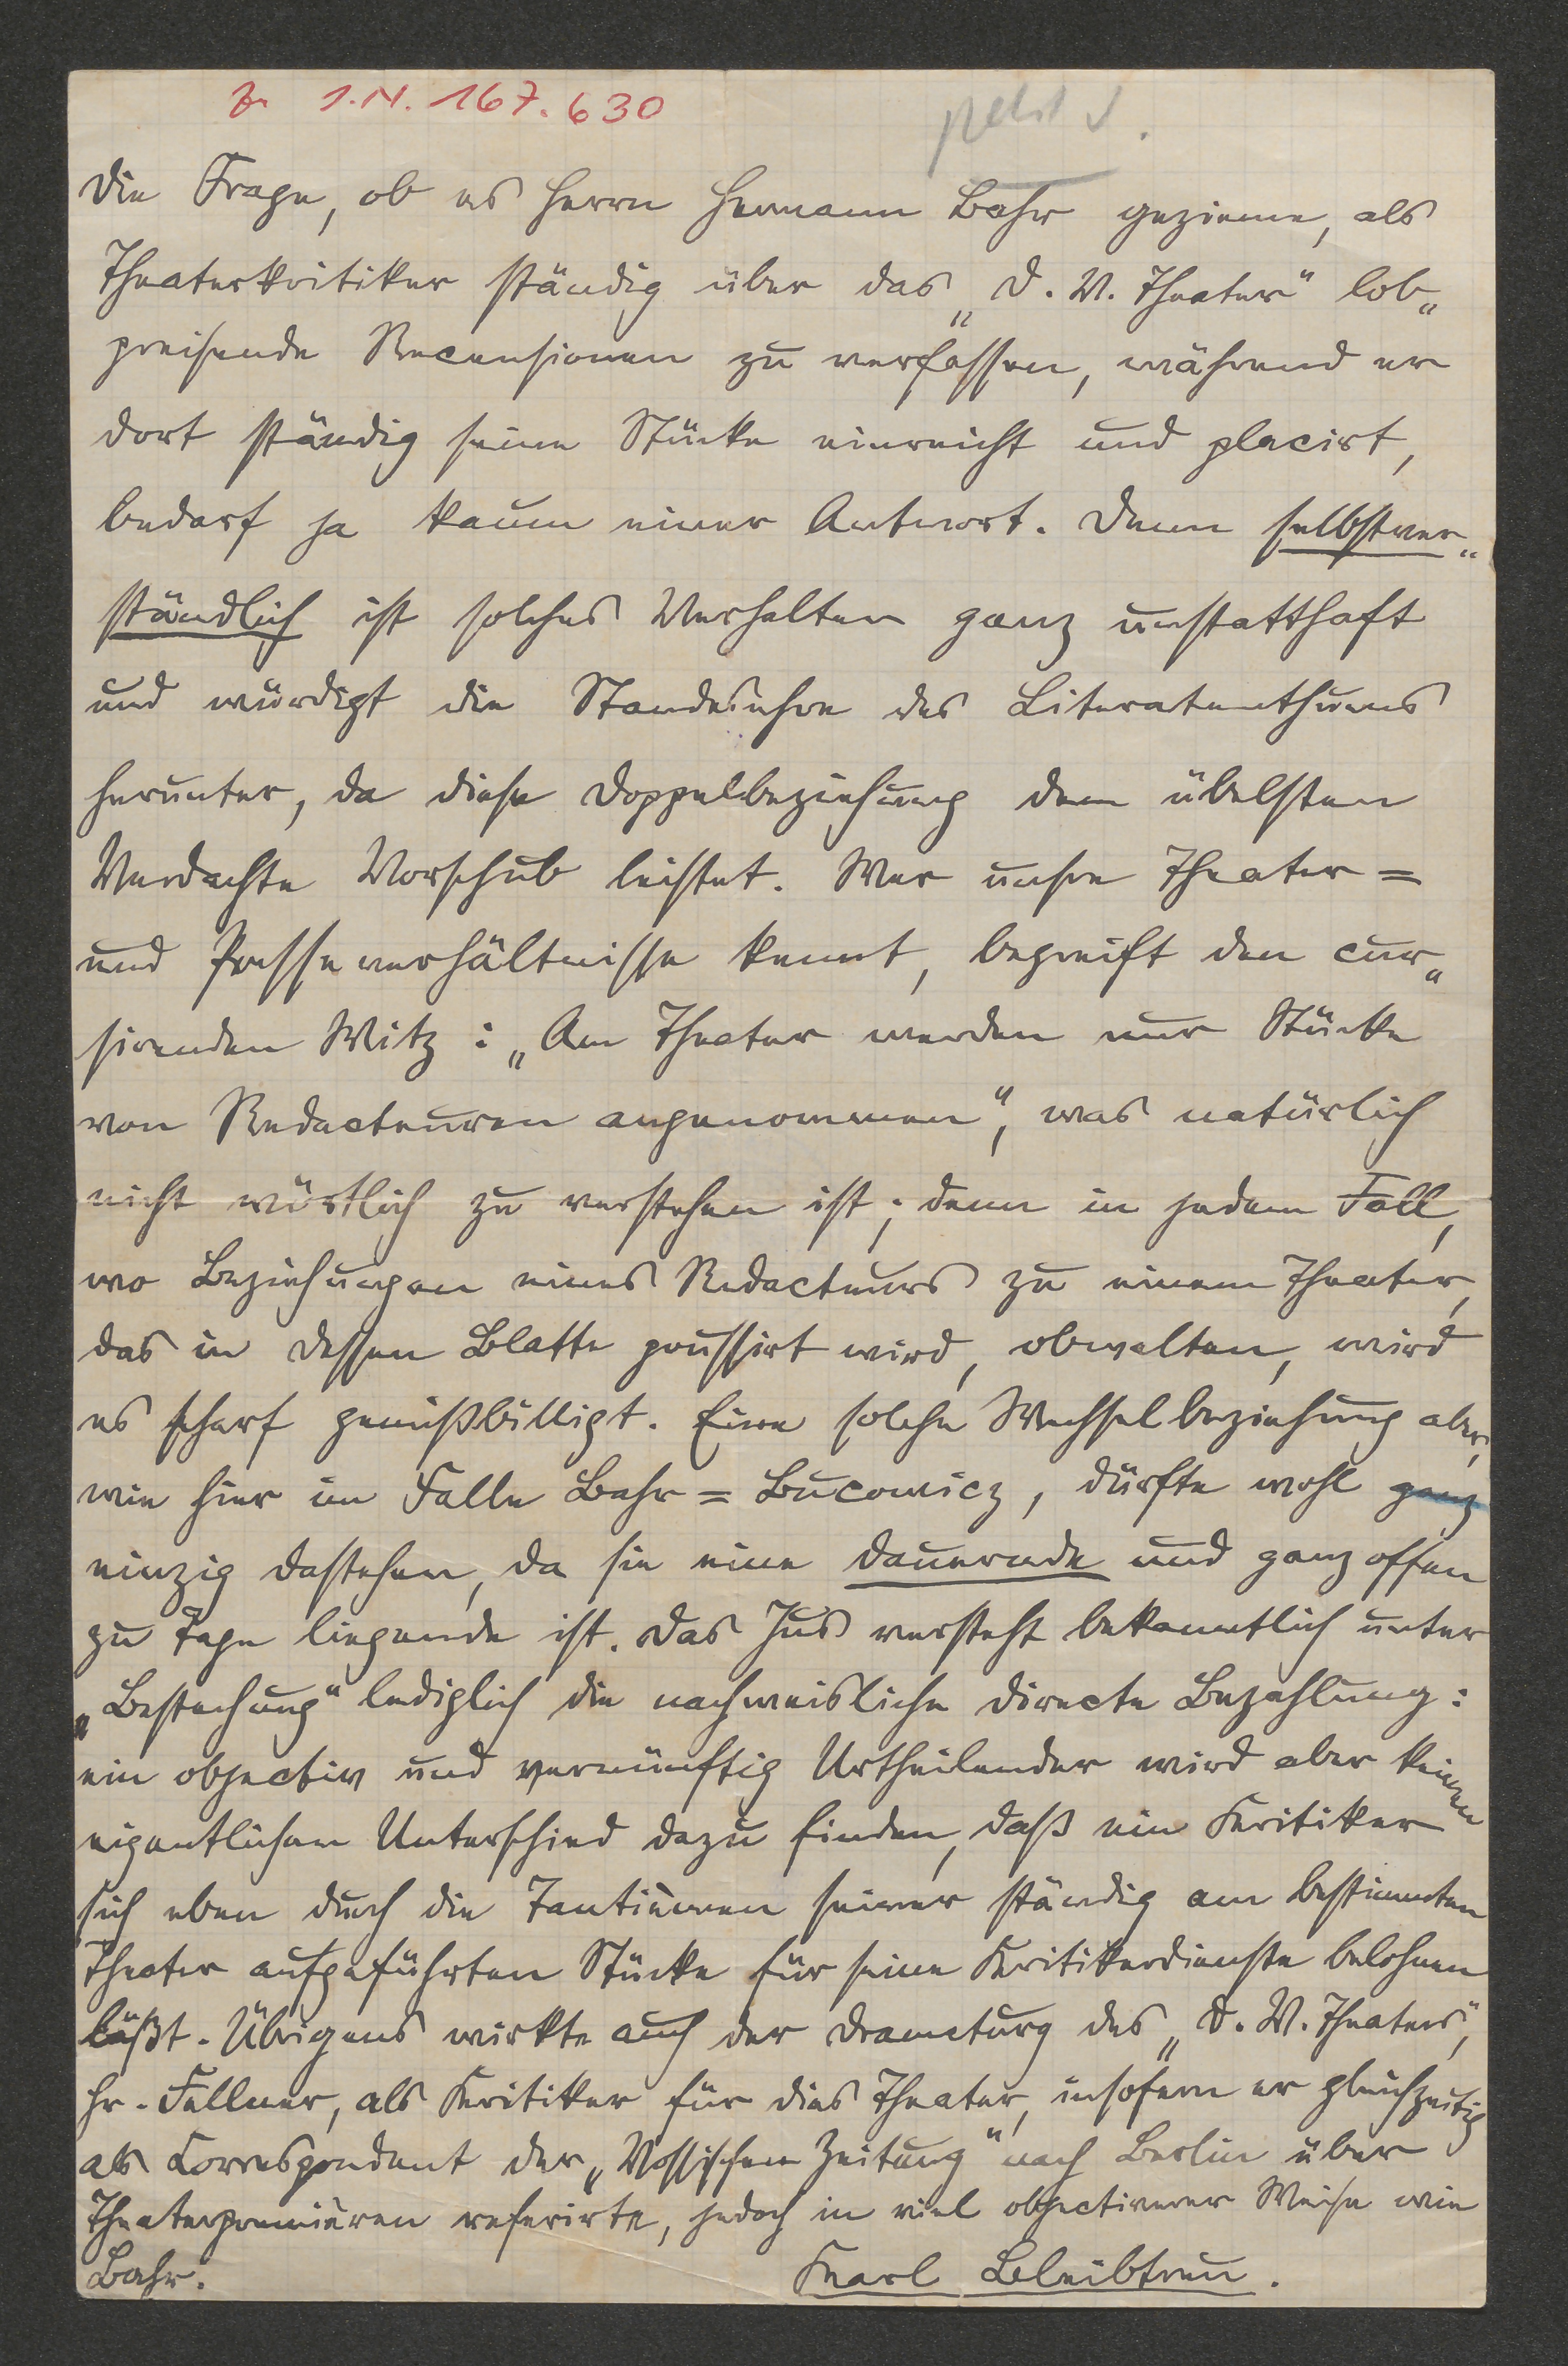 Zu I.N. 167.630
Die Frage, ob es Herrn Hermann Bahr gezieme, als
Theaterkritiker ständig über das „D. V. Theater“ lob„
preisende Recensionen zu verfassen, während er
dort ständig seine Stücke einreicht und placirt,
bedarf ja kaum einer Antwort. Denn selbstver„
ständlich ist solches Verhalten ganz unstatthaft
und würdigt die Standesehre des Literatenthums
herunter, da diese Doppelbeziehung dem übelsten
Verdachte Vorschub leistet. Wer unsre Theater=
und Presseverhältnisse kennt, begreift den cur„
sirenden Witz: „Am Theater werden nur Stücke
von Redacteuren angenommen“, was natürlich
nicht wörtlich zu verstehen ist; denn in jedem Fall,
wo Beziehungen eines Redacteurs zu einem Theater,
das in dessen Blatte poussirt wird, obwalten, wird
es scharf gemißbilligt. Eine solche Wechselbeziehung aber,
wie hier im Falle Bahr=Bucovicz, dürfte wohl ganz
einzig dastehen, da sie eine dauernde und ganz offen
zu Tage liegende ist. Das Jus versteht bekanntlich unter
„Bestechung“ lediglich die nachweisliche directe Bezahlung:
ein objectiv und vernünftig Urtheilender wird aber keinen
eigentlichen Unterschied dazu finden, daß ein Kritiker
sich eben durch die Tantièmen seiner ständig am bestimmten
Theater aufgeführten Stücke für seine Kritikerdienste belohnen
läßt. Übrigens wirkte auch der Dramaturg des „D. V. Theaters“,
Hr. Fellner, als Kritiker für dies Theater, insofern er gleichzeitig
als Correspondent der „Vossischen Zeitung“ nach Berlin über
Theaterpremièren referirte, jedoch in viel objectiverer Weise wie
Bahr.
Karl Bleibtreu.